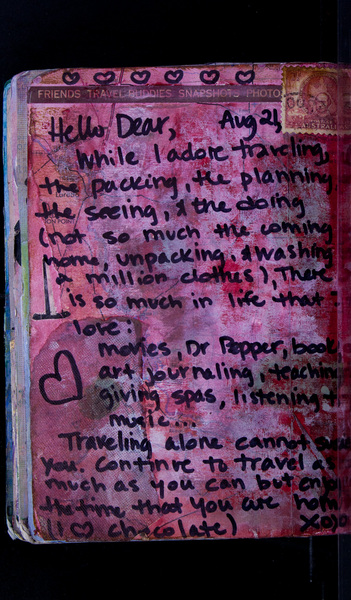 FRIENDS TRAVEL BUDDIES SNAPSHOTS PHOTO
Hello Dear, Aug 21,
While I adore traveling,
the packing, the planning
the seeing, & the doing
(not so much the coming
home, unpacking, & washing
a million clothes), There
is so much in life that I
love:
movies, Dr Pepper, book
art journaling, teaching
giving spas, listening t
music...
Traveling alone cannot
you. Continue to travel as
much as you can but enjo
the time that you are hom
(I ♡ chocolate) XOXO